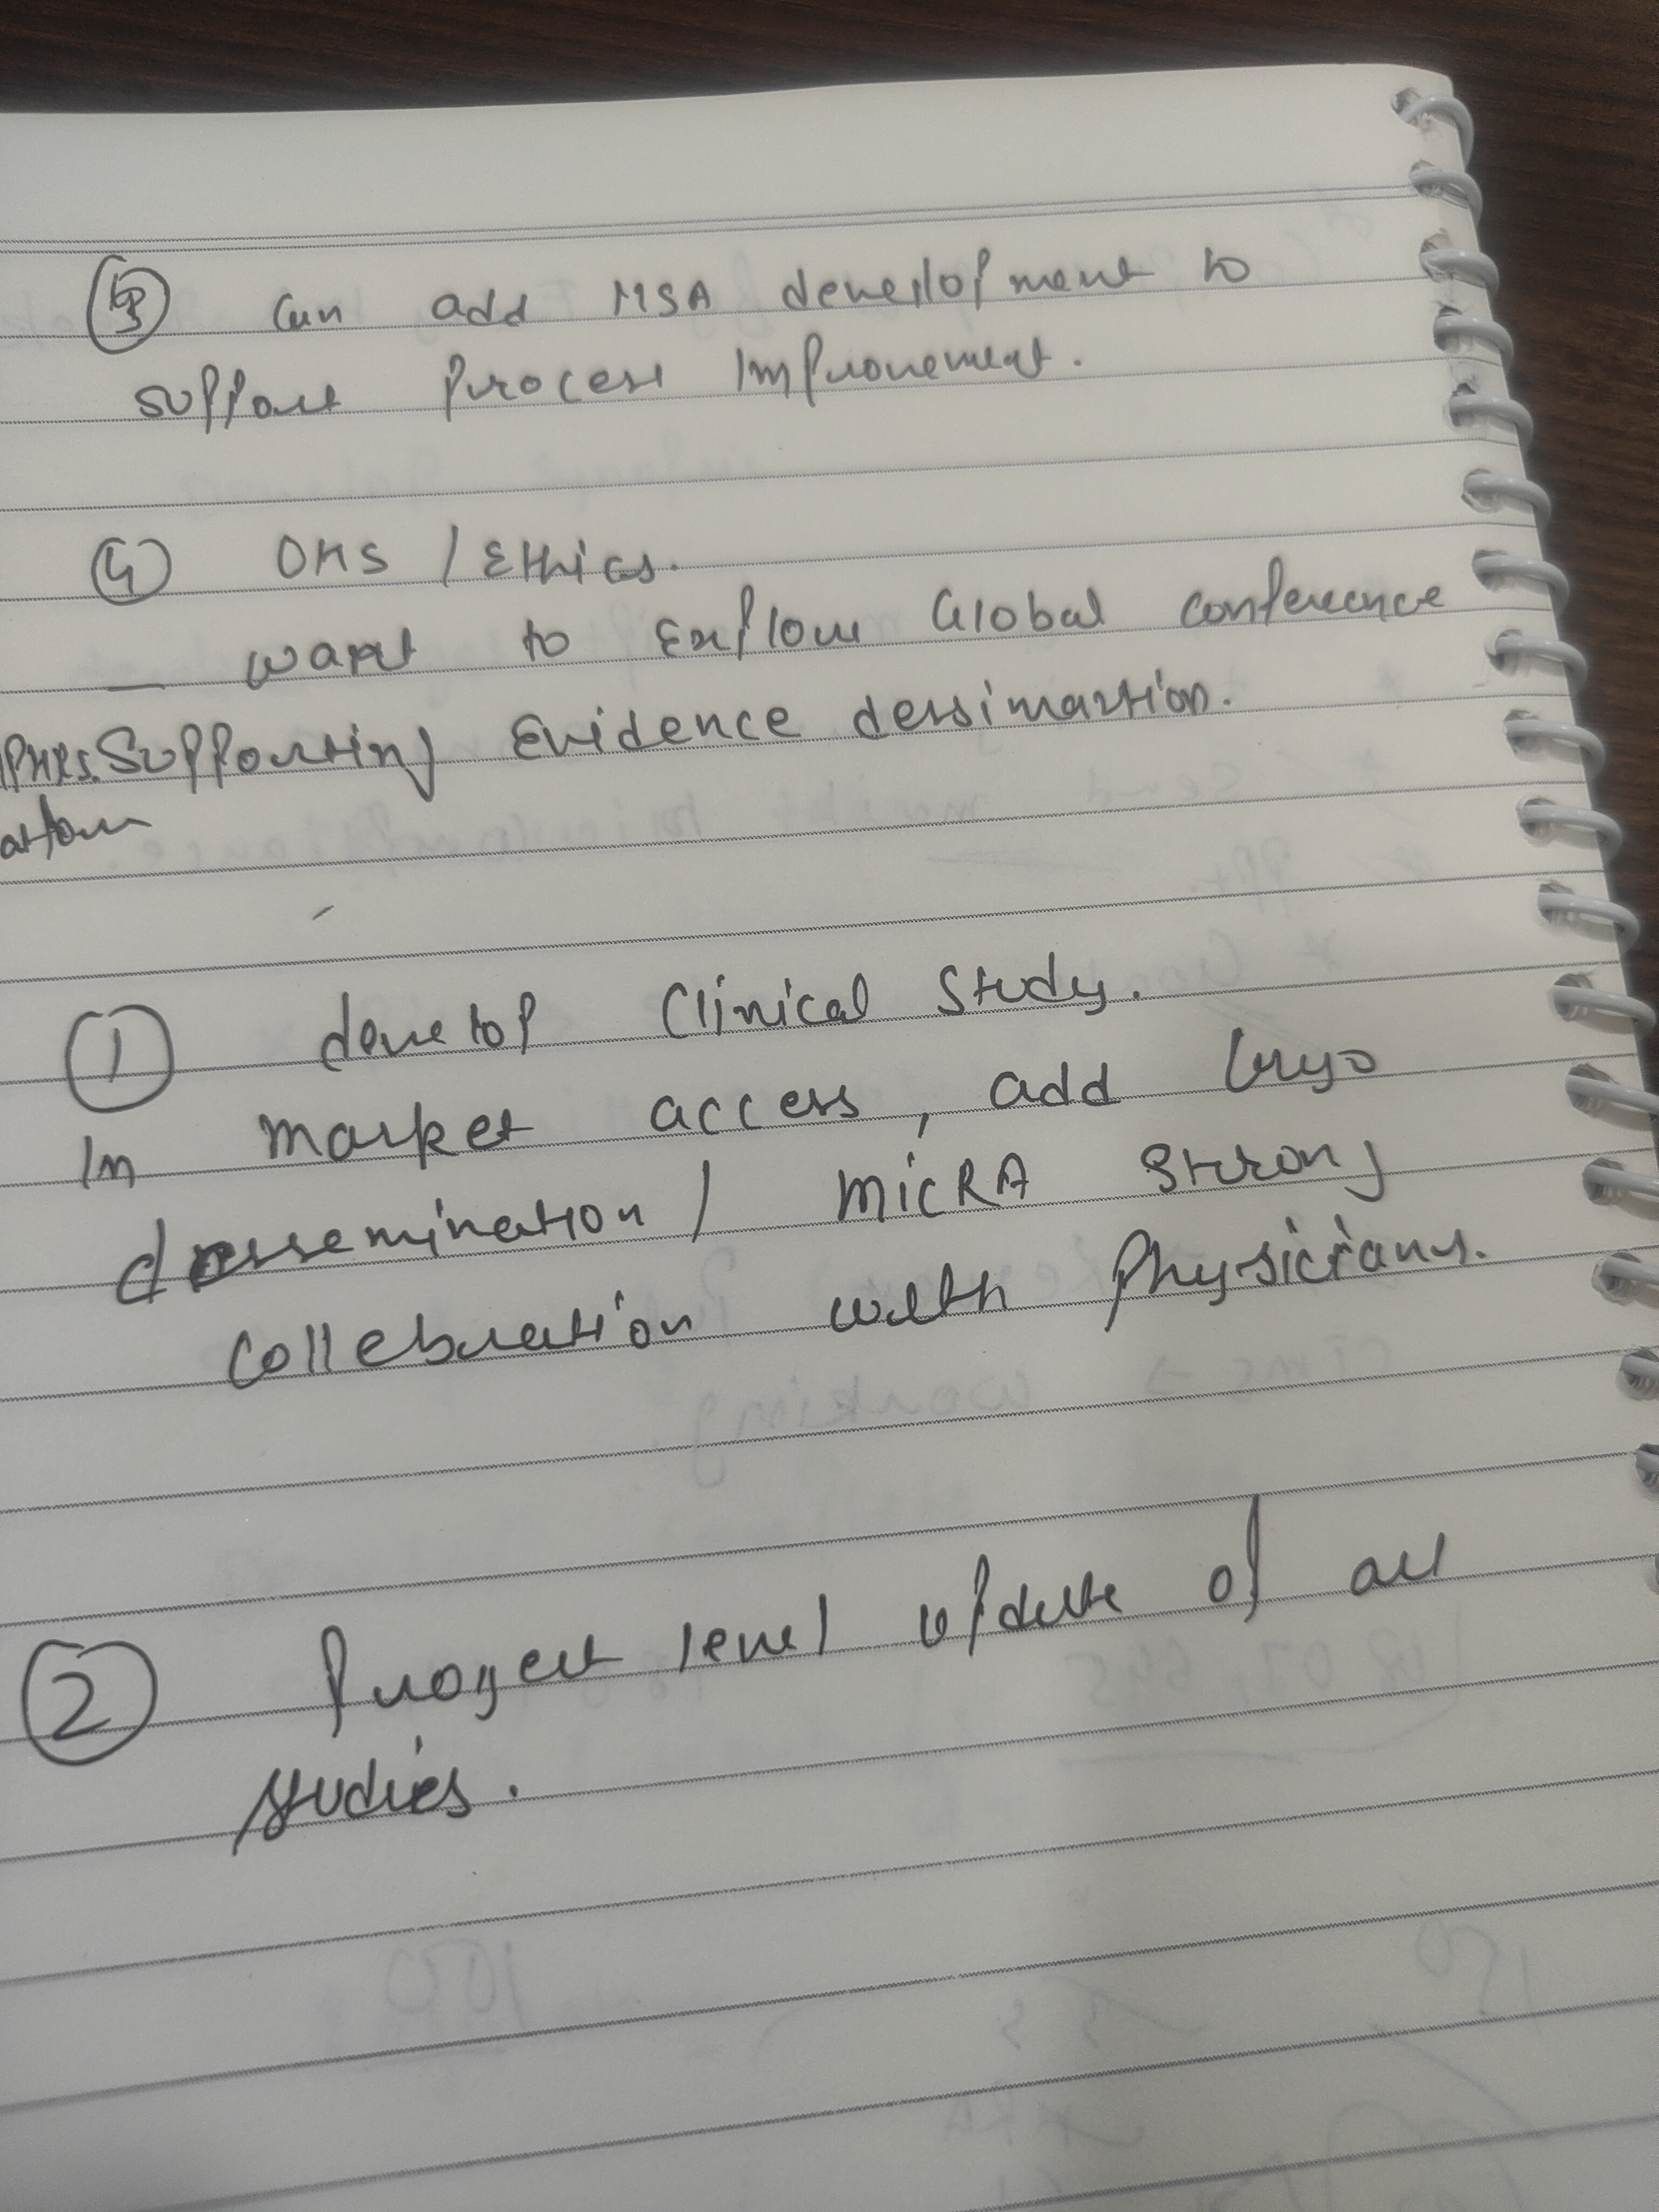 ③ Can add MSA development to
support process improvement.
④ OMS / Ethics.
— want to Explore Global conference
Supporting Evidence dessimartion.
① develop Clinical Study.
In market access, add Cryo
dessemination / MicRA Strong
Collebration with Physicians.
② Project level update of all
studies.